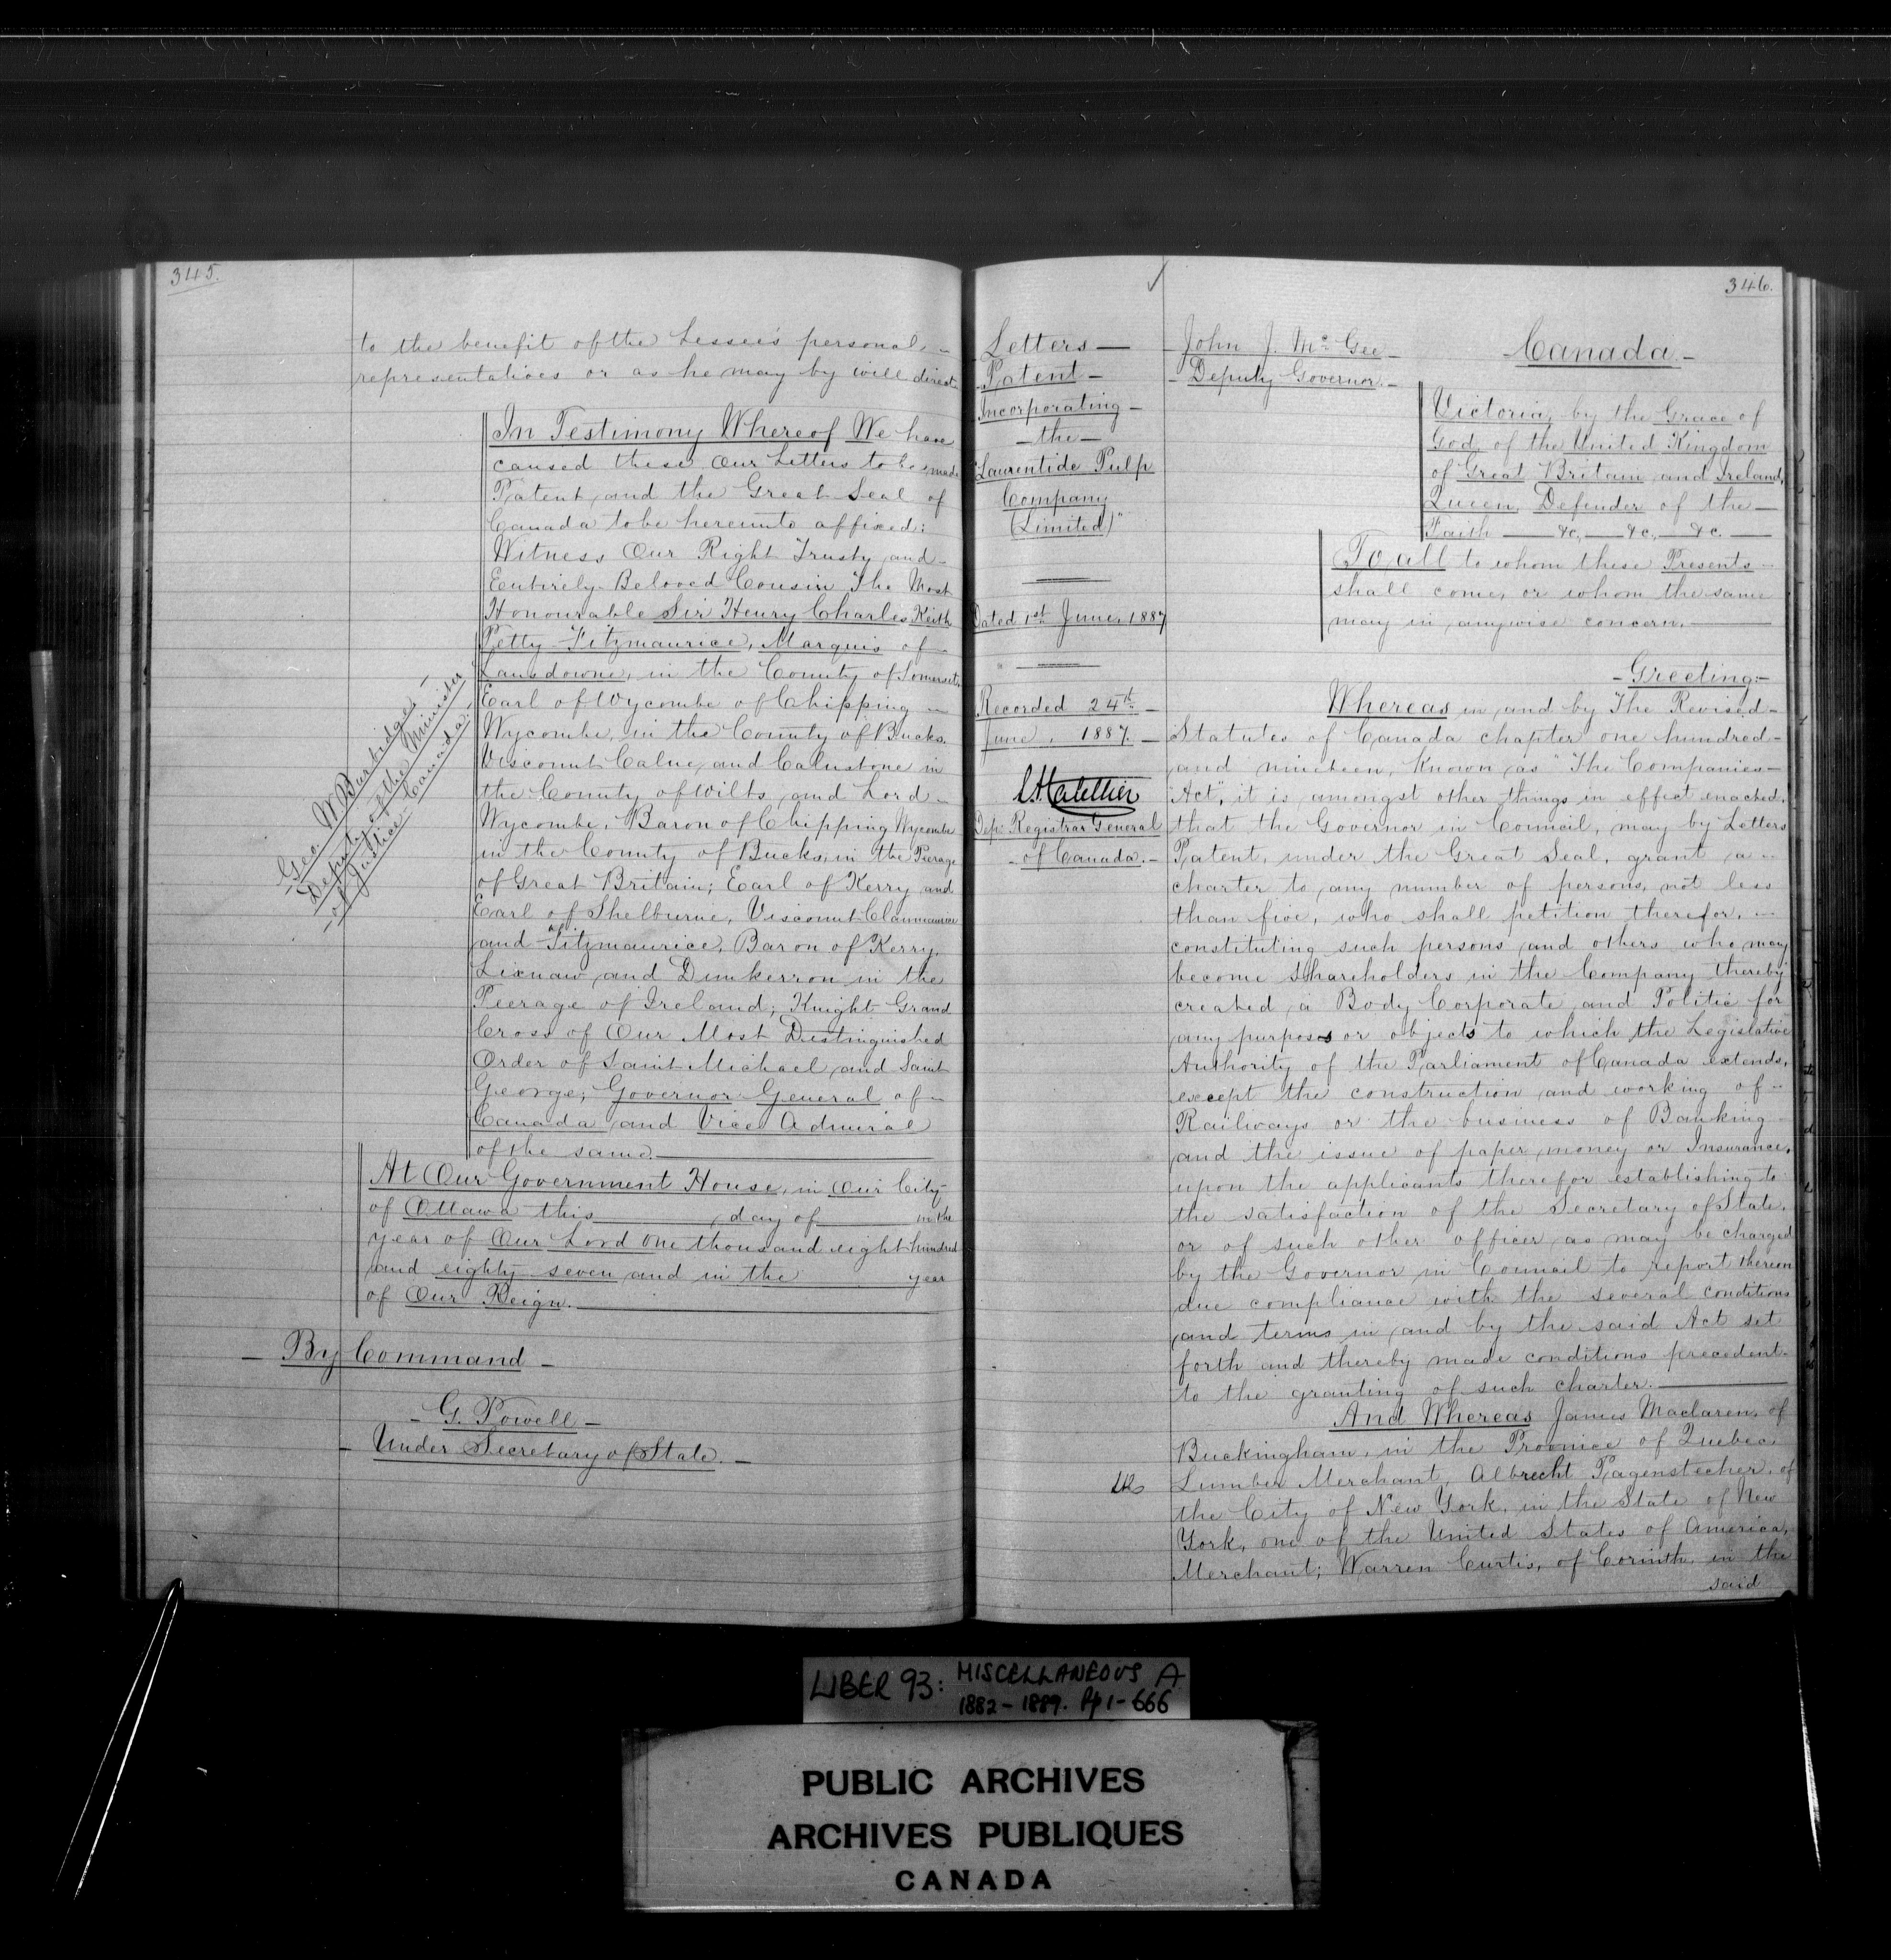 345.
to the benefit of the Lessee's personal
representatives or as he may by will direct.
In Testimony Whereof We have
caused these Our Letters to be made
Patent, and the Great Seal of
Canada to be hereunto affixed:
Witness Our Right Trusty and
Entirely Beloved Cousin The Most
Honourable Sir Henry Charles Keith
Petty-Fitzmaurice, Marquis of
Lansdowne, in the County of Somerset,
Earl of Wycombe of Chipping
Wycombe, in the County of Bucks,
Viscount Calne and Calnstone in
the County of Wilts, and Lord
Wycombe, Baron of Chipping Wycombe
in the County of Bucks, in the Peerage
of Great Britain; Earl of Kerry and
Earl of Shelburne, Viscount Clanmaurice
and Fitzmaurice, Baron of Kerry,
Lixnaw and Dunkerron in the
Peerage of Ireland; Knight Grand
Cross of Our Most Distinguished
Order of Saint Michael and Saint
George; Governor General of
Canada and Vice Admiral
of the same.
At Our Government House, in Our City
of Ottawa this day of in the
year of Our Lord one thousand eight hundred
and eighty seven and in the year
of Our Reign.
Geo W Burbidge,
Deputy of the Minister
of Justice, Canada.
By Command
G. Powell
Under Secretary of State.
346.
Letters
Patent
Incorporating
the
"Laurentide Pulp
Company
(Limited)"
Dated 1st June, 1887
Recorded 24th
June, 1887.
Dep. Registrar General
of Canada.
John J. McGee
Deputy Governor.
Canada
Victoria, by the Grace of
God, of the United Kingdom
of Great Britain and Ireland,
Queen, Defender of the
Faith &c, &c, &c.
To all to whom these Presents
shall come, or whom the same
may in anywise concern.
Greeting:
Whereas in and by The Revised
Statutes of Canada chapter one hundred
and nineteen, Known as "The Companies
Act", it is amongst other things in effect enacted,
that the Governor in Council, may by Letters
Patent, under the Great Seal, grant a
charter to any number of persons, not less
than five, who shall petition therefor,
constituting such persons and others who may
become Shareholders in the Company thereby
created a Body Corporate and Politic for
any purposes or objects to which the Legislative
Authority of the Parliament of Canada extends,
except the construction and working of
Railways or the business of Banking
and the issue of paper money or Insurance,
upon the applicants therefor establishing to
the satisfaction of the Secretary of State,
or of such other officer as may be charged
by the Governor in Council to report thereon
due compliance with the several conditions
and terms in and by the said Act set
forth and thereby made conditions precedent
to the granting of such charter.
And Whereas James Maclaren, of
Buckingham, in the Province of Quebec,
Lumber Merchant, Albrecht Pagenstecher, of
the City of New York, in the State of New
York, one of the United States of America,
Merchant; Warren Curtis, of Corinth, in the
said
LIBER 93: MISCELLANEOUS A
1882-1889. Pp 1-666
PUBLIC ARCHIVES
ARCHIVES PUBLIQUES
CANADA